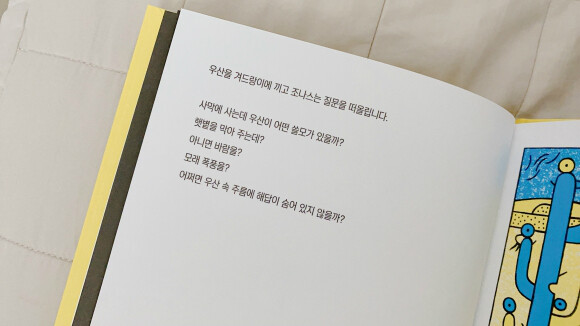 우산을 겨드랑이에 끼고 조나스는 질문을 떠올립니다.
사막에 사는데 우산이 어떤 쓸모가 있을까?
햇볕을 막아 주는데?
아니면 바람을?
모래 폭풍을?
어쩌면 우산 속 주름에 해답이 숨어 있지 않을까?